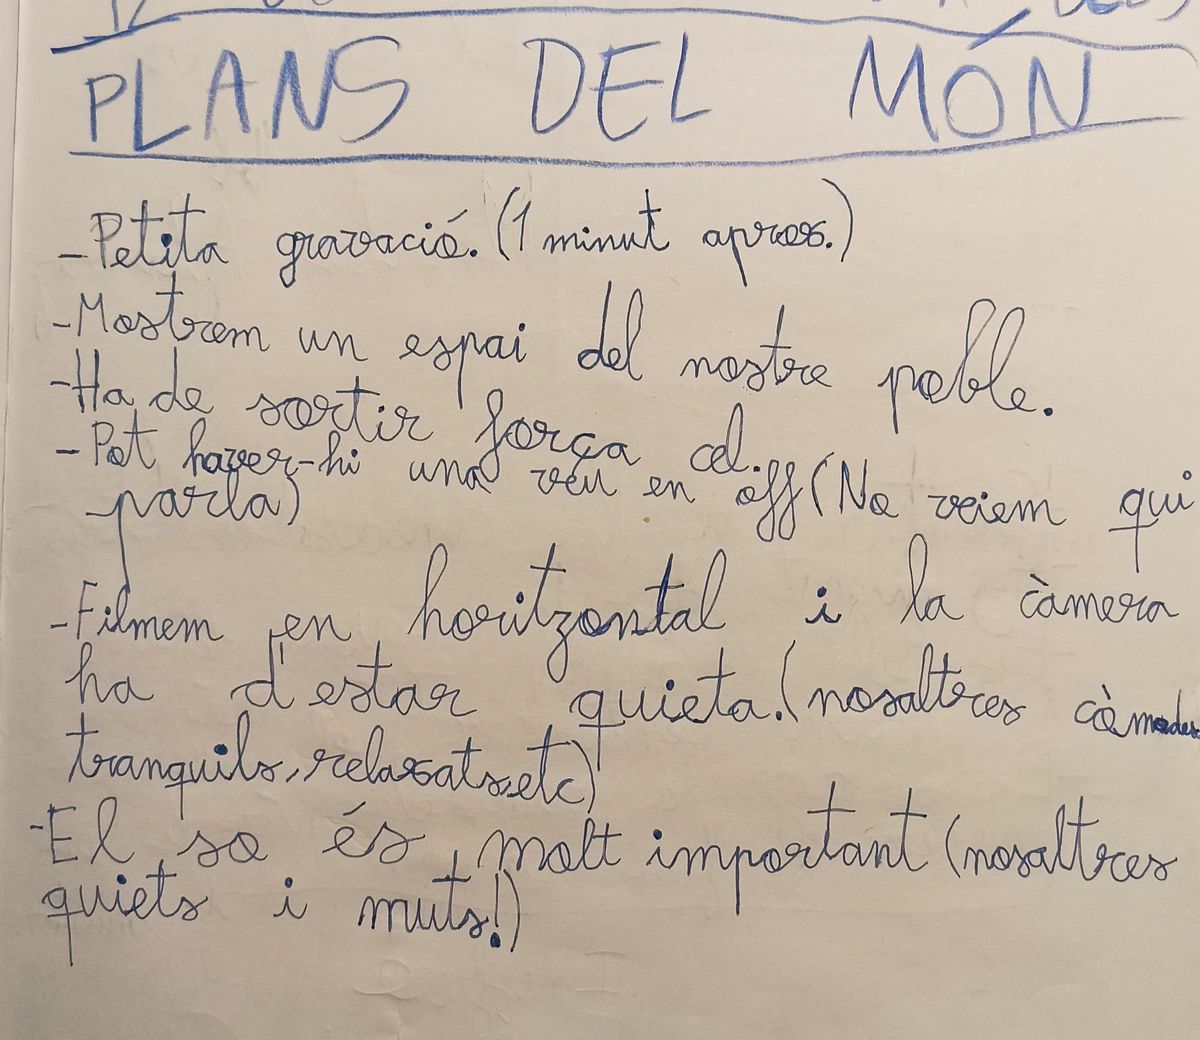 PLANS DEL MÓN
-Petita gravació. (1 minut aprox.)
-Mostrem un espai del nostre poble.
-Ha de sortir força cel.
-Pot haver-hi una veu en off (No veiem qui
parla)
-Filmem en horitzontal i la càmera
ha d'estar quieta. (nosaltres còmodes
tranquils, relaxats, etc)
-El so és molt important (nosaltres
quiets i muts!)